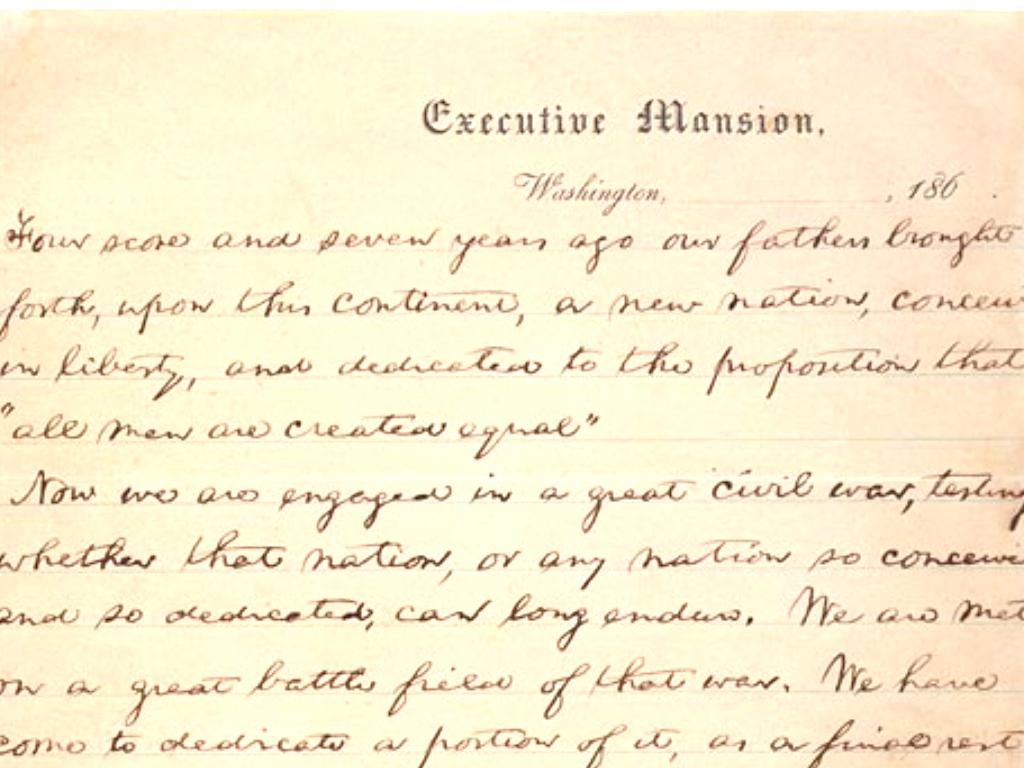 Executive Mansion,
Washington, , 186 .
Four score and seven years ago our fathers brought
forth, upon this continent, a new nation, conceiv
in liberty, and dedicated to the proposition that
"all men are created equal"
Now we are engaged in a great civil war, testing
whether that nation, or any nation so conceiv
and so dedicated, can long endure. We are met
on a great battle field of that war. We have
come to dedicate a portion of it, as a final rest